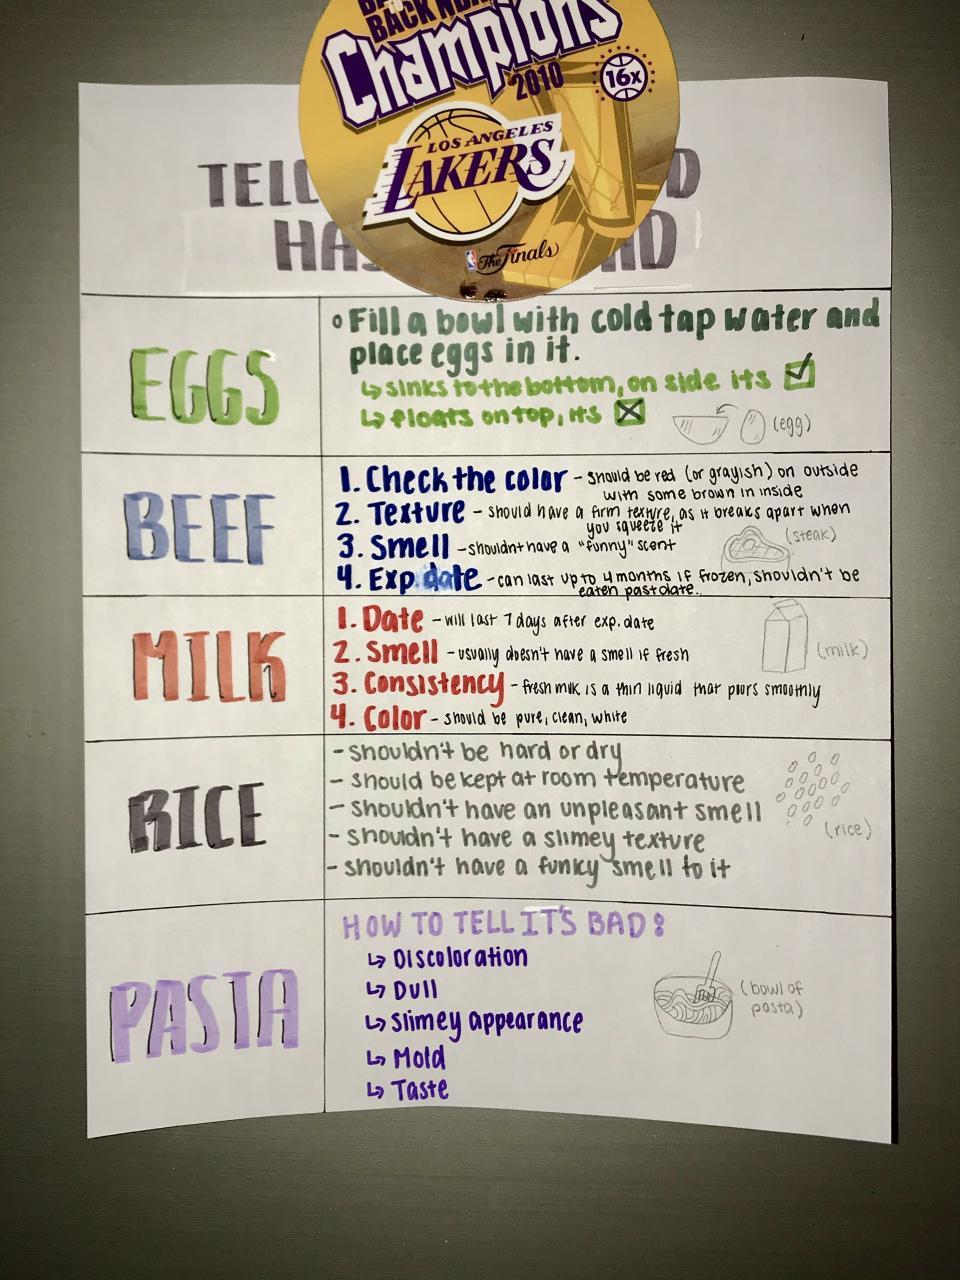 BACK
Champions
2010
16x
LOS ANGELES
LAKERS
NBA
The Finals
EGGS
Fill a bowl with cold tap water and
place eggs in it.
↳ sinks to the bottom, on side its ☑
↳ floats on top, its ☒
(egg)
BEEF
1. Check the color - should be red (or grayish) on outside
with some brown in inside
2. Texture - should have a firm texture, as it breaks apart when
you squeeze it
3. Smell - shouldnt have a "funny" scent
(steak)
4. Exp date - can last up to 4 months if frozen, shouldn't be
eaten past date.
MILK
1. Date - will last 7 days after exp. date
2. Smell - usually doesn't have a smell if fresh
(milk)
3. Consistency - fresh milk is a thin liquid that pours smoothly
4. Color - should be pure, clean, white
RICE
- shouldn't be hard or dry
- should be kept at room temperature
- shouldn't have an unpleasant smell
- shouldn't have a slimey texture
- shouldn't have a funky smell to it
(rice)
PASTA
HOW TO TELL IT'S BAD:
↳ Discoloration
↳ Dull
↳ Slimey appearance
↳ Mold
↳ Taste
(bowl of
pasta)